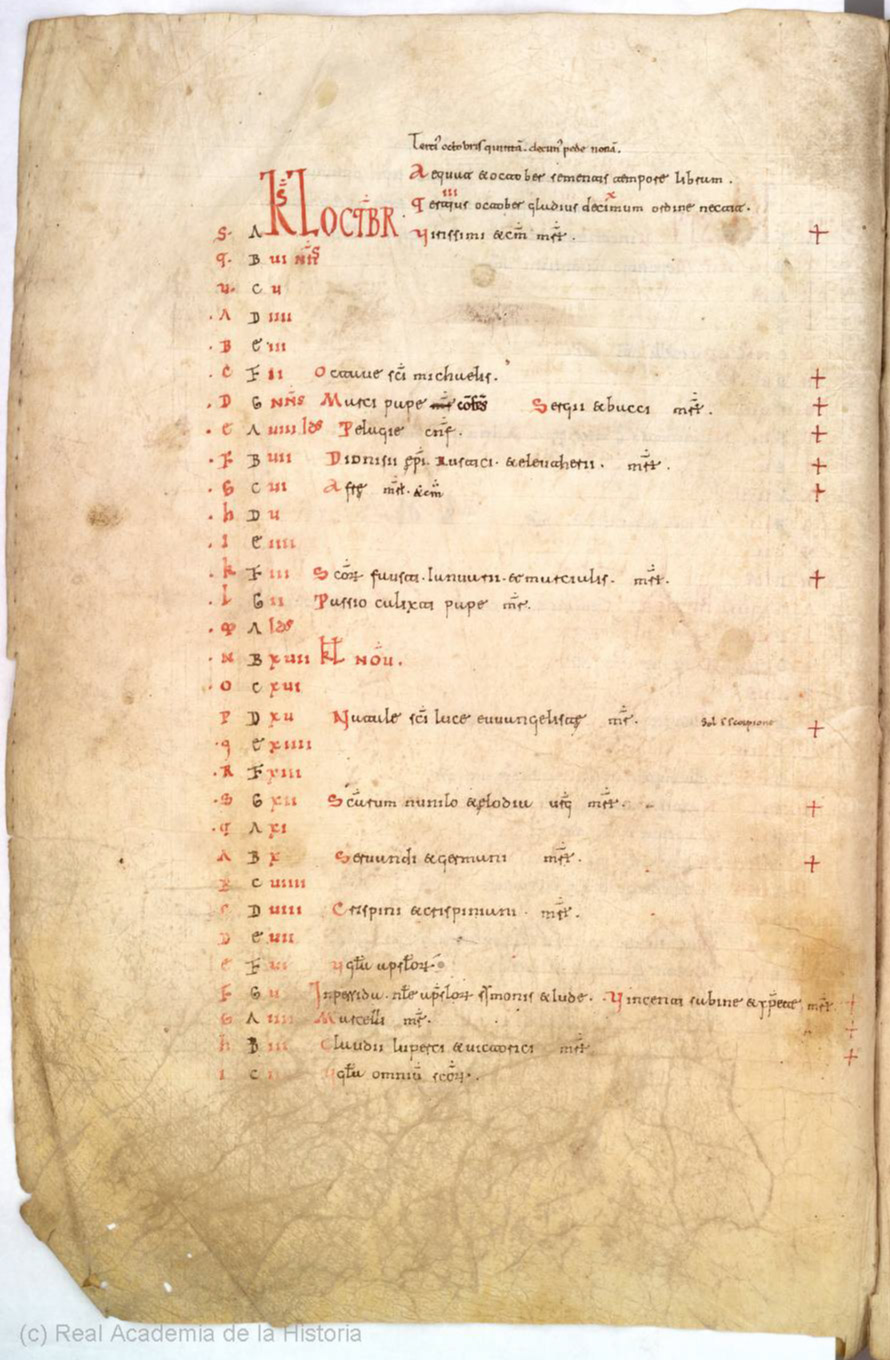 Terci' octobris quintā. decim' pede nonā.
Aequat & october sementis tempore librum.
Tertius III october gladius decimum X ordine necat.
S. A KLS OCTBR Virissimi & cm̄ mrt̄. +
T. B VI NNS
V. C V
.A D IIII
.B E III
.C F II Octave sc̄i michaelis. +
.D G NNS Marci pape cōfs Sergii & bacci mrt̄. +
.E A VIIII IdS Pelagie cnf̄. +
.F B VII Dionisii ep̄i. Rustici. & eleutherii. mrt̄. +
.G C VI Afre mrt̄. & cm̄ +
.h D V
.I E IIII
.K F III Scōr fausti. Ianuarii. & martialis. mrt̄. +
.L G II Passio calixti pape mr̄.
.M A IdS
.N B XVII KL NOV.
.O C XVI
P D XV Natale sc̄i luce evangelistę mr̄. Sol ī scorpione +
.Q E XIIII
.R F XIII
.S G XII Scārum nunilo & elodia virḡ mrt̄. +
.T A XI
A B X Servandi & germani mrt̄. +
B C VIIII
C D VIII Crispini & crispiniani. mrt̄.
D E VII
E F VI Vigl̄a apstlor̄
F G V In persida. nt̄le apstlor̄ symonis & iude. Vincenti sabine & xp̄ete mrt̄. +
G A IIII Marcelli mr̄. +
h B III Claudii luperci & victorici mrt̄ +
I C II Vigl̄a omniū scōr̄.
(c) Real Academia de la Historia